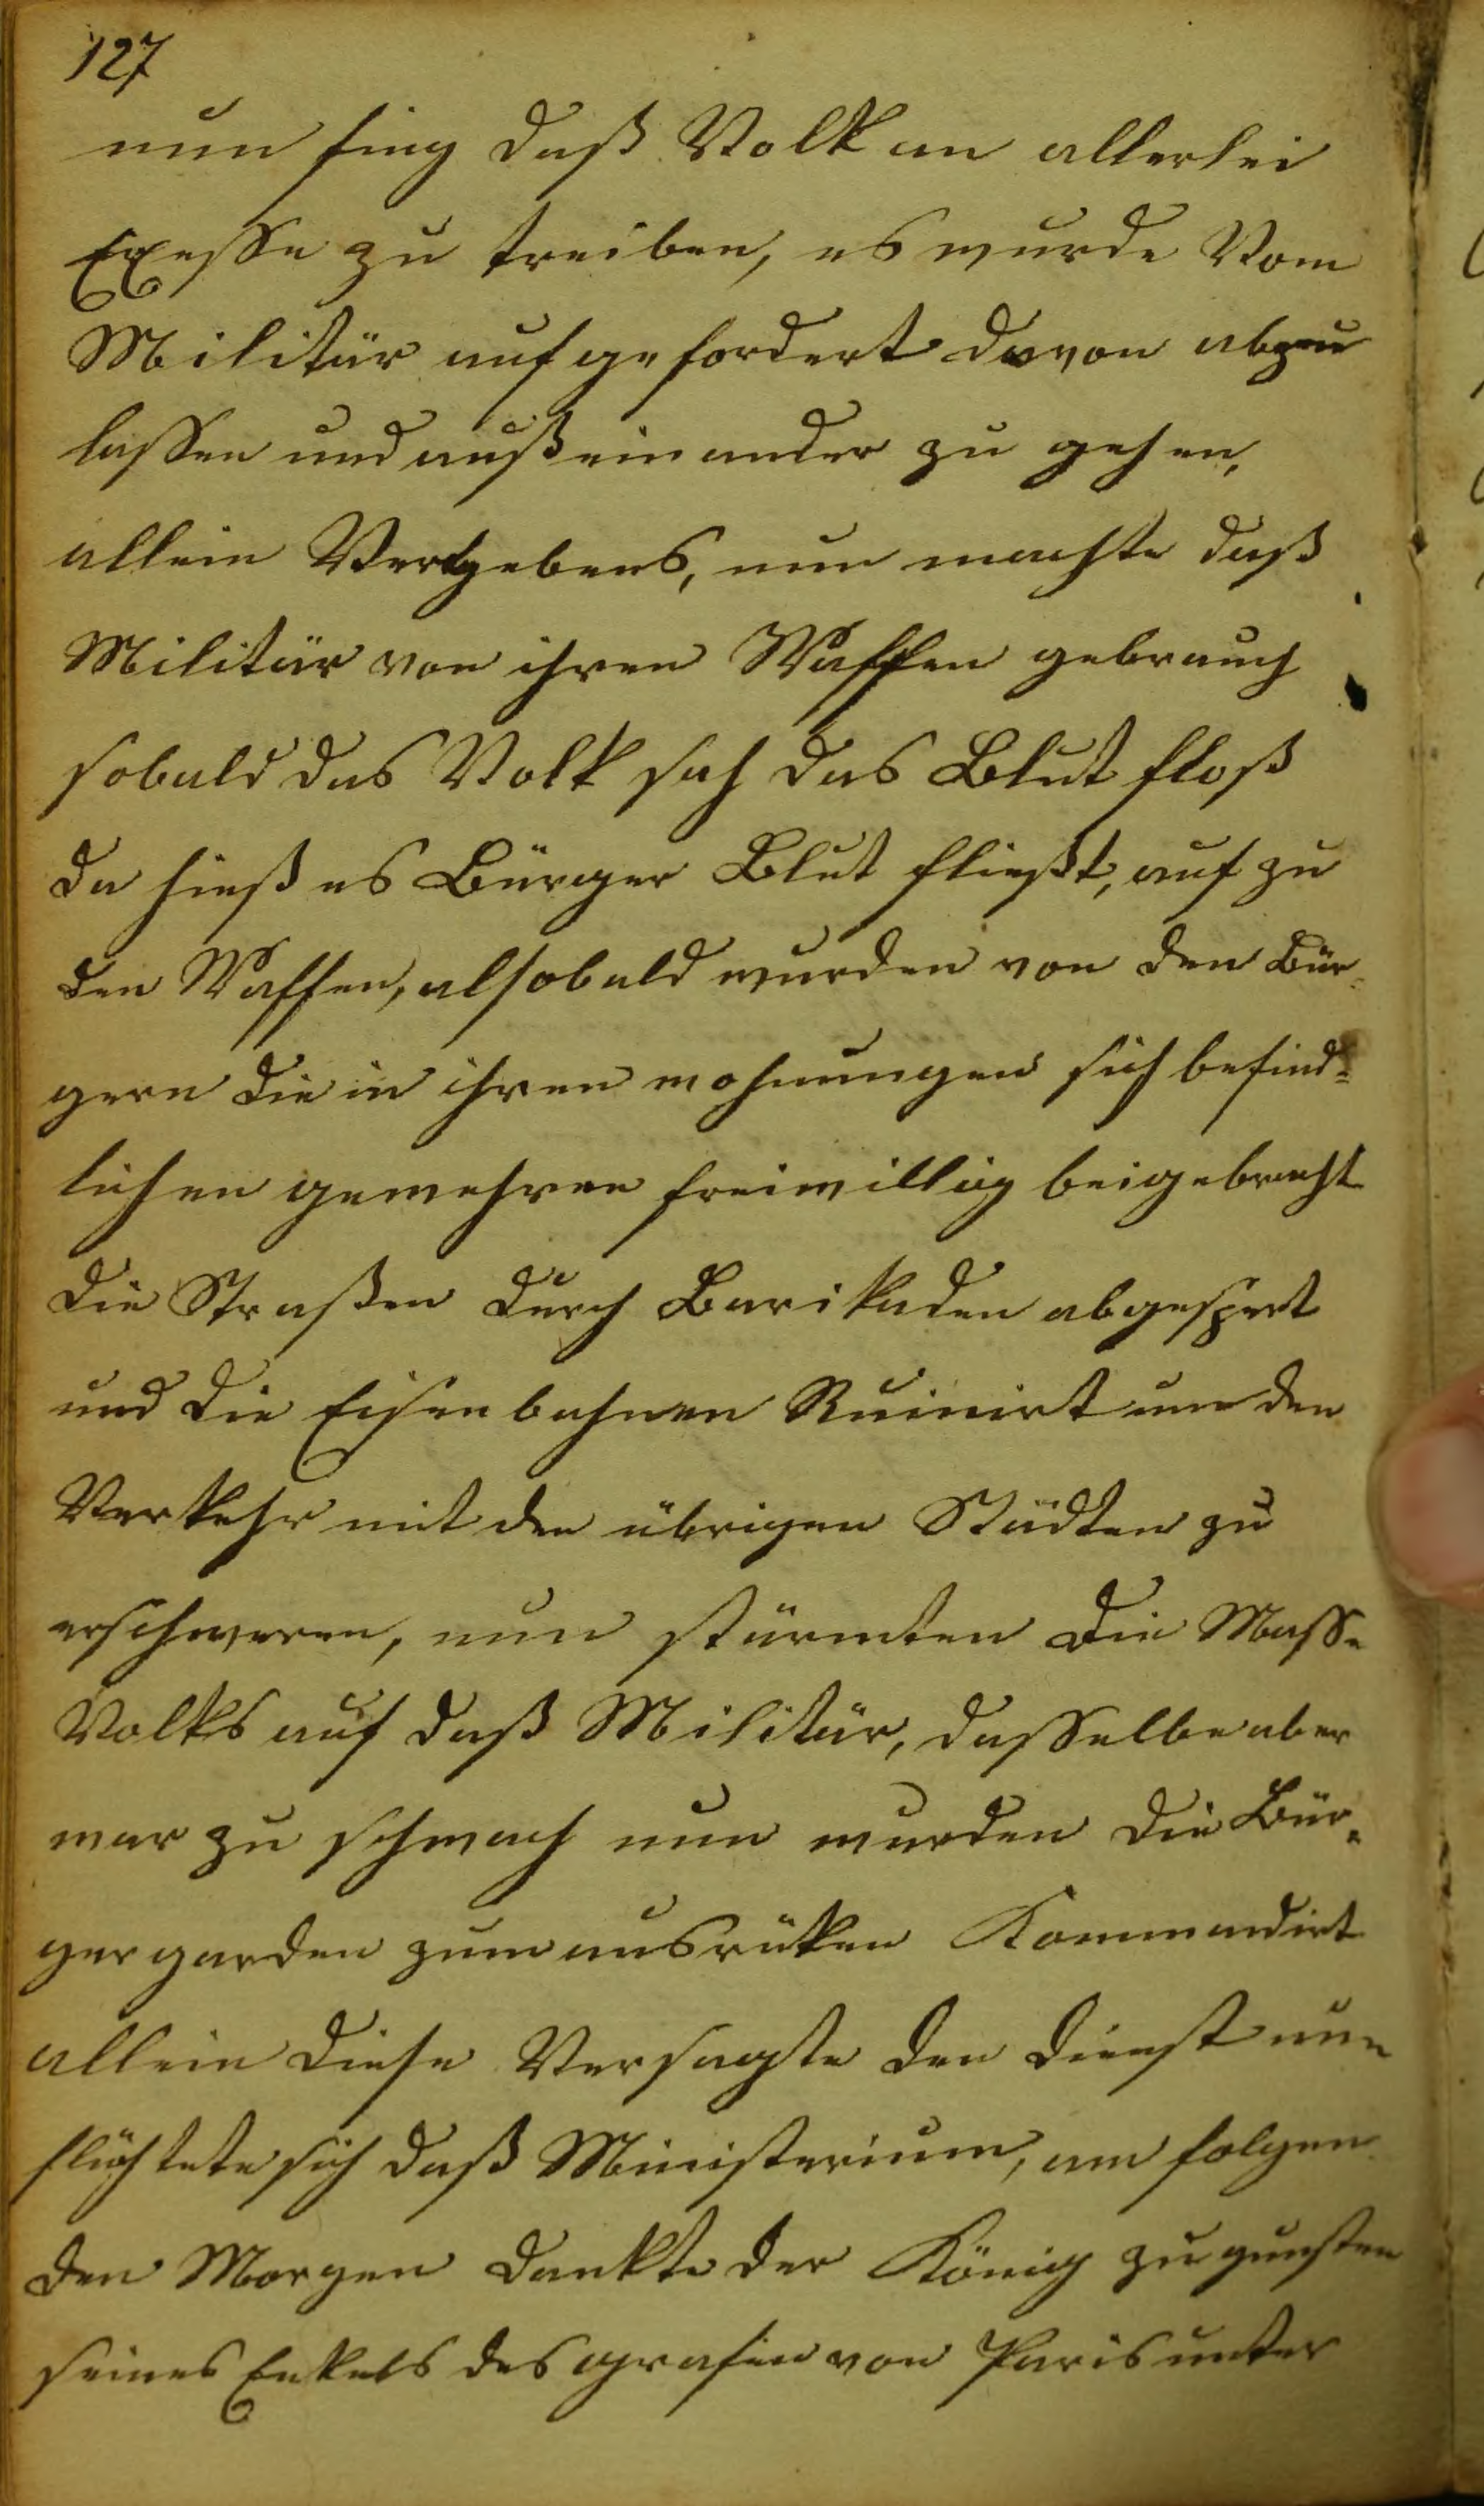 127
nun fing daß Volk an allerlei
Exesse zu treiben, es wurde Vom
Militär aufgefordert davon abzu
lassen und außeinander zu gehen,
allein Vergebens, nun machte daß
Militär von ihren Waffen gebrauch
sobald das Volk sah das Blut floß
da hieß es Bürger Blut fließt, auf zu
den Waffen, alsobald wurden von den Bür-
gern die in ihren wohnungen sich befind-
lichen gewehren freiwillig beigebracht
die Straßen durch Barikaden abgespert
und die Eisenbahnen Ruinirt um den
Verkehr mit den übrigen Städten zu
erschweren, nun stürmten die Masse
Volks auf daß Militär, dasselbe aber
war zu schwach nun wurden die Bür-
gergarden zum ausrüken Kommandirt
allein diese Versagte den dienst nun
flüchtete sich daß Ministerium, am folgen
den Morgen dankte der König zu gunsten
seines Enkels des grafen von Paris unter